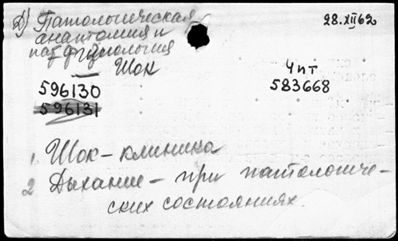 Д) Патологическая
анатомия и
пат физиология
Шок
28.XII62
596130
596131
Чит
583668
1. Шок - клиника
2. Дыхание - при патологиче-
ских состояниях.